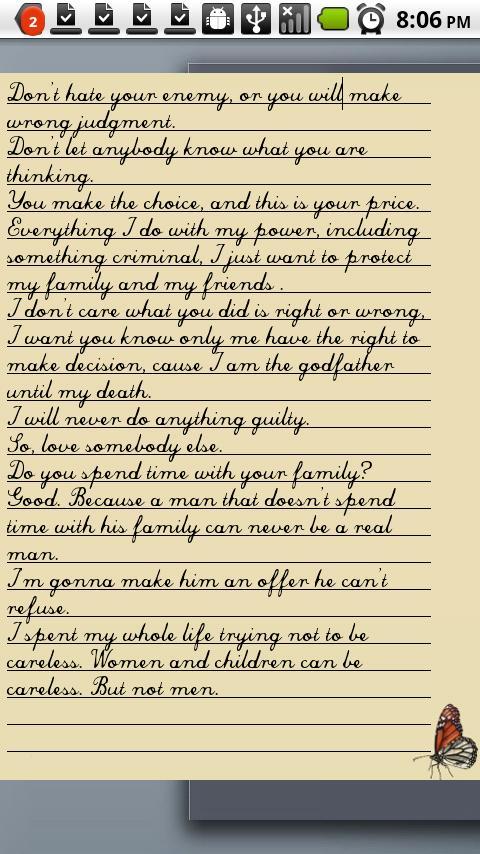 2
8:06 PM
Don't hate your enemy, or you will make
wrong judgment.
Don't let anybody know what you are
thinking.
You make the choice, and this is your price.
Everything I do with my power, including
something criminal, I just want to protect
my family and my friends .
I don't care what you did is right or wrong,
I want you know only me have the right to
make decision, cause I am the godfather
until my death.
I will never do anything guilty.
So, love somebody else.
Do you spend time with your family?
Good. Because a man that doesn't spend
time with his family can never be a real
man.
I'm gonna make him an offer he can't
refuse.
I spent my whole life trying not to be
careless. Women and children can be
careless. But not men.